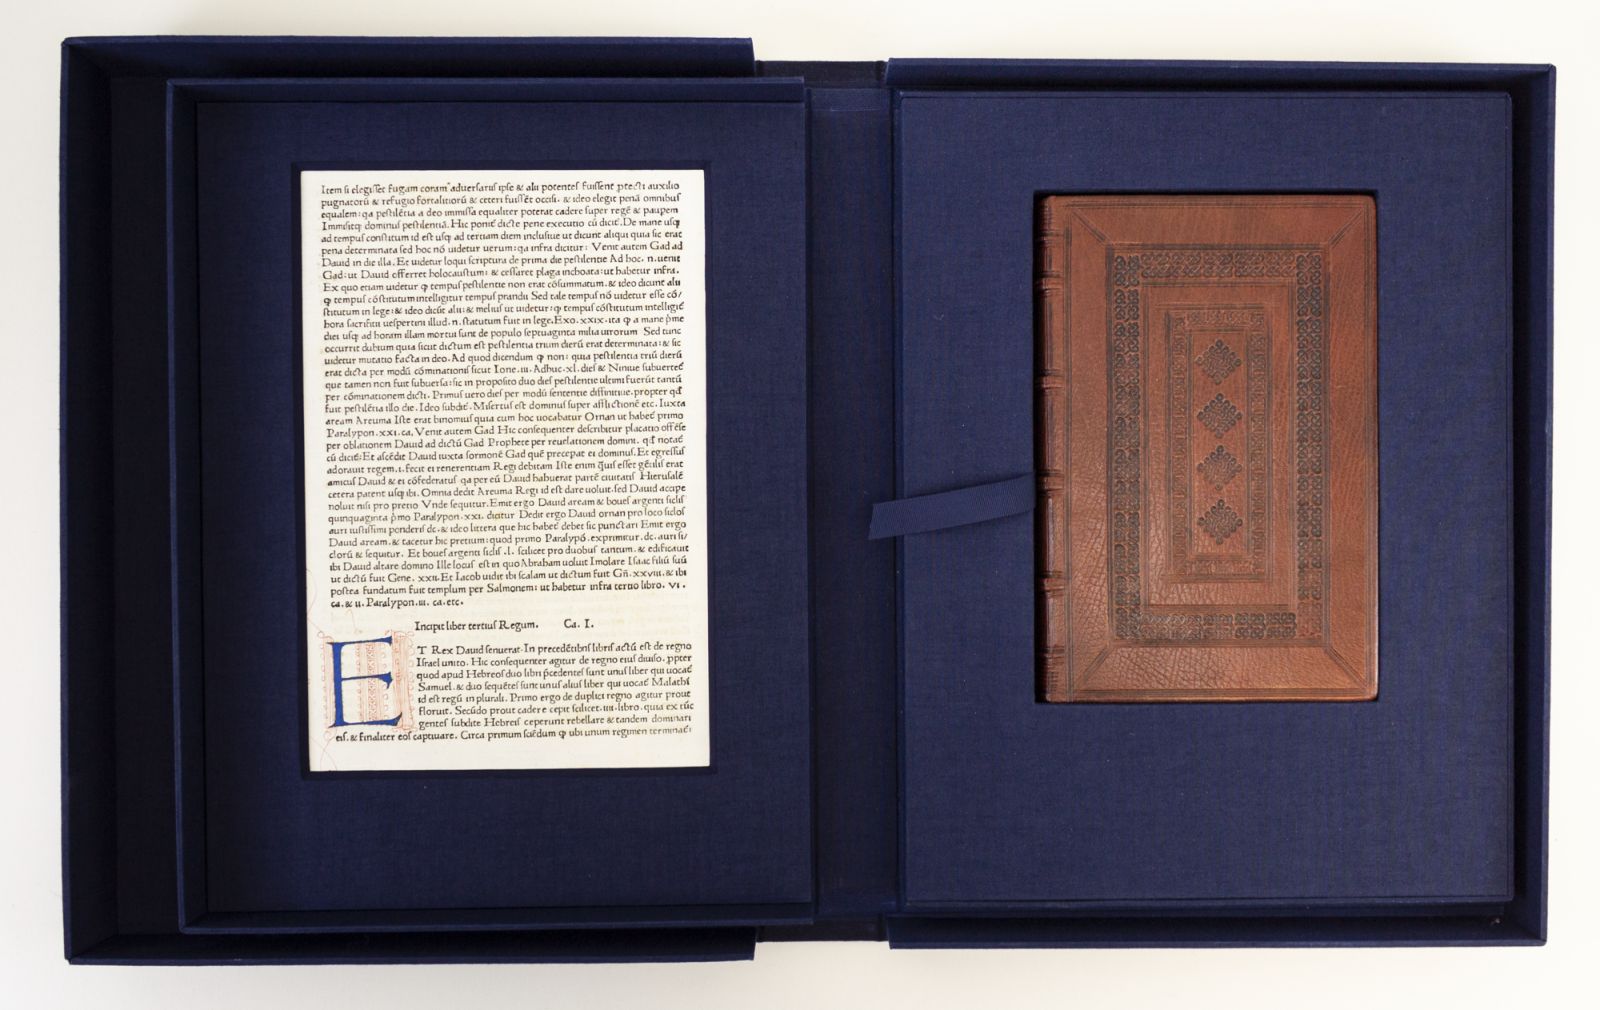 Item si elegisset fugam coram aduersariis ipse & alii potentes fuissent ꝓtecti auxilio
pugnatorũ & refugio fortalitiorũ & ceteri fuissẽt occisi. & ideo elegit penã omnibus
equalem: qa pestilẽtia a deo immissa equaliter poterat cadere super regẽ & paupem
Immisitqꝫ dominus pestilentiã. Hic ponit̃ dicte pene executio cũ dicit̃. De mane usqꝫ
ad tempus constitum id est usqꝫ ad tertiam diem inclusiue ut dicunt aliqui quia sic erat
pena determinata sed hoc nõ uidetur uerum: qa infra dicitur: Venit autem Gad ad
Dauid in die illa. Et uidetur loqui scriptura de prima die pestilentie Ad hoc. n. uenit
Gad: ut Dauid offerret holocaustum: & cessaret plaga inchoata: ut habetur infra.
Ex quo etiam uidetur ꝙ tempus pestilentie non erat cõsummatum. & ideo dicunt alii
ꝙ tempus cõstitutum intelligitur tempus prandii Sed tale tempus nõ uidetur esse cõ/
stitutum in lege: & ideo dicũt alii: & melius ut uidetur: ꝙ tempus cõstitutum intelligit̃
hora sacrificii uespertini illud. n. statutum fuit in lege. Exo. xxix. ita ꝙ a mane p̃me
diei usqꝫ ad horam illam mortui sunt de populo septuaginta milia uirorum Sed tunc
occurrit dubium quia sicut dictum est pestilentia trium dierũ erat determinata: & sic
uidetur mutatio facta in deo. Ad quod dicendum ꝙ non: quia pestilentia triũ dierũ
erat dicta per modũ cõminationis sicut Ione. iii. Adhuc. xl. dies & Niniue subuertet̃
que tamen non fuit subuersa: sic in proposito duo dies pestilentie ultimi fuerũt tantũ
per cõminationem dicti. Primus uero dies per modũ sententie diffinitiue. propter qđ
fuit pestilẽtia illo die. Ideo subdit̃. Misertus est dominus super afflictionẽ etc. Iuxta
aream Areuma Iste erat binomius quia cum hoc uocabatur Ornan ut habet̃ primo
Paralypon. xxi. ca, Venit autem Gad Hic consequenter describitur placatio offẽse
per oblationem Dauid ad dictũ Gad Prophete per reuelationem domini. qđ notat̃
cũ dicit̃: Et ascẽdit Dauid iuxta sormonẽ Gad quẽ precepat ei dominus. Et egressus
adorauit regem. i. fecit ei renerentiam Regi debitam Iste enim q̃uis esset gẽtilis erat
amicus Dauid & ei cõfederatus qa per eũ Dauid habuerat partẽ ciuitatis Hierusalẽ
cetera patent usqꝫ ibi. Omnia dedit Areuma Regi id est dare uoluit. sed Dauid accipe
noluit nisi pro pretio Vnde sequitur. Emit ergo Dauid aream & boues argenti siclis
quinquaginta p̃mo Paralypon. xxi. dicitur Dedit ergo Dauid ornan pro loco siclos
auri iustissimi ponderis dc. & ideo littera que hic habet̃ debet sic punctari Emit ergo
Dauid aream. & tacetur hic pretium: quod primo Paralypõ. exprimitur. dc. auri si/
clorũ & sequitur. Et boues argenti siclis . l. scilicet pro duobus tantum. & edificauit
ibi Dauid altare domino Ille locus est in quo Abraham uoluit Imolare Isaac filiũ suũ
ut dictũ fuit Gene. xxii. Et Iacob uidit ibi scalam ut dictum fuit Gñ. xxviii. & ibi
postea fundatum fuit templum per Salmonem: ut habetur infra tertio libro. vi.
ca. & ii. Paralypon. iii. ca. etc.
Incipit liber tertius Regum. Ca. I.
ET Rex Dauid senuerat. In precedẽtibus libris actũ est de regno
Israel unito. Hic consequenter agitur de regno eius diuiso. ꝓpter
quod apud Hebreos duo libri p̃cedentes sunt unus liber qui uocat̃
Samuel. & duo sequẽtes sunt unus alius liber qui uocat̃ Malachi
id est regũ in plurali. Primo ergo de duplici regno agitur prout
floruit. Secũdo prout cadere cepit scilicet. iiii. libro. quia ex tũc
gentes subdite Hebreis ceperunt rebellare & tandem dominari
eis. & finaliter eos captiuare. Circa primum sciẽdum ꝙ ubi unum regimen terminat̃